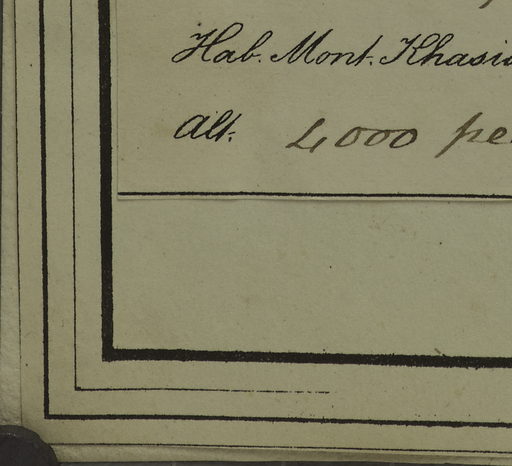 Hab. Mont. Khasia
Alt. 4000 pe